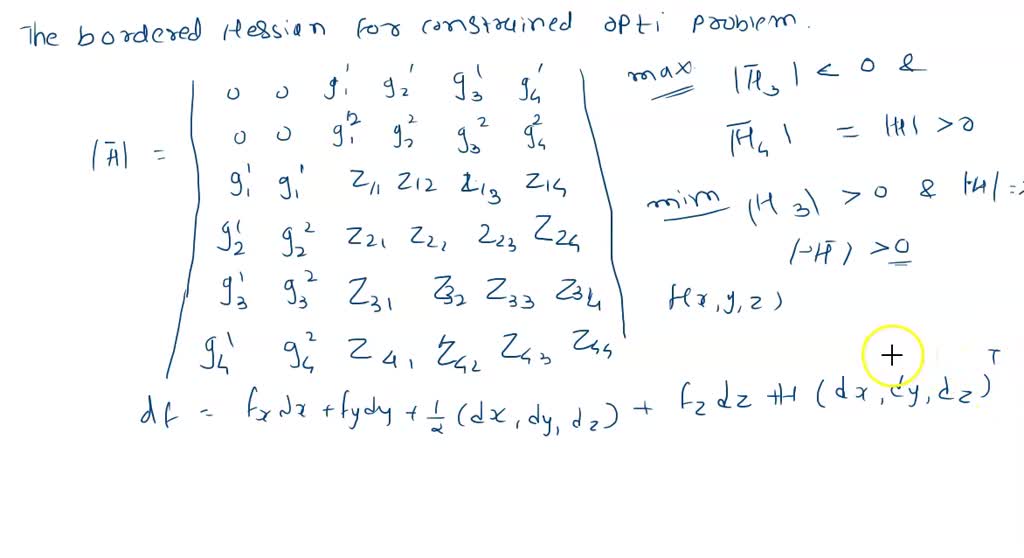 The bordered Hessian for constrained opti problem.
|H̄| =
0 0 g₁¹ g₂¹ g₃¹ g₄¹
0 0 g₁² g₂² g₃² g₄²
g₁¹ g₁¹ Z₁₁ Z₁₂ Z₁₃ Z₁₄
g₂¹ g₂² Z₂₁ Z₂₂ Z₂₃ Z₂₄
g₃¹ g₃² Z₃₁ Z₃₂ Z₃₃ Z₃₄
g₄¹ g₄² Z₄₁ Z₄₂ Z₄₃ Z₄₄
max |H̄₃| < 0 &
H̄₄| = |H| > 0
mim (H₃) > 0 & |H| =
|H̄) > 0
f(x, y, z)
df = fx dx + fy dy + ½ (dx, dy, dz) + fz dz + H (dx, dy, dz)ᵀ